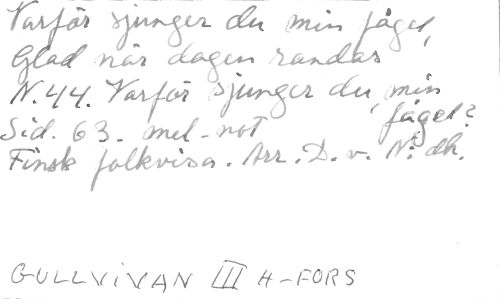 Varför sjunger du min fågel,
Glad när dagen randas
N.44. Varför sjunger du, min fågel?
Sid. 63. mel-not
Finsk folkvisa. Arr. D. v. N. dk.
GULLVIVAN III H-FORS